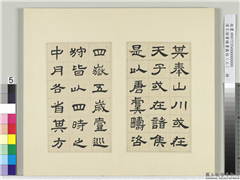 其奉山川或在
天子或在諸侯
是以唐虞疇咨
四嶽五歲壹巡
狩皆以四時之
中月各省其方
5